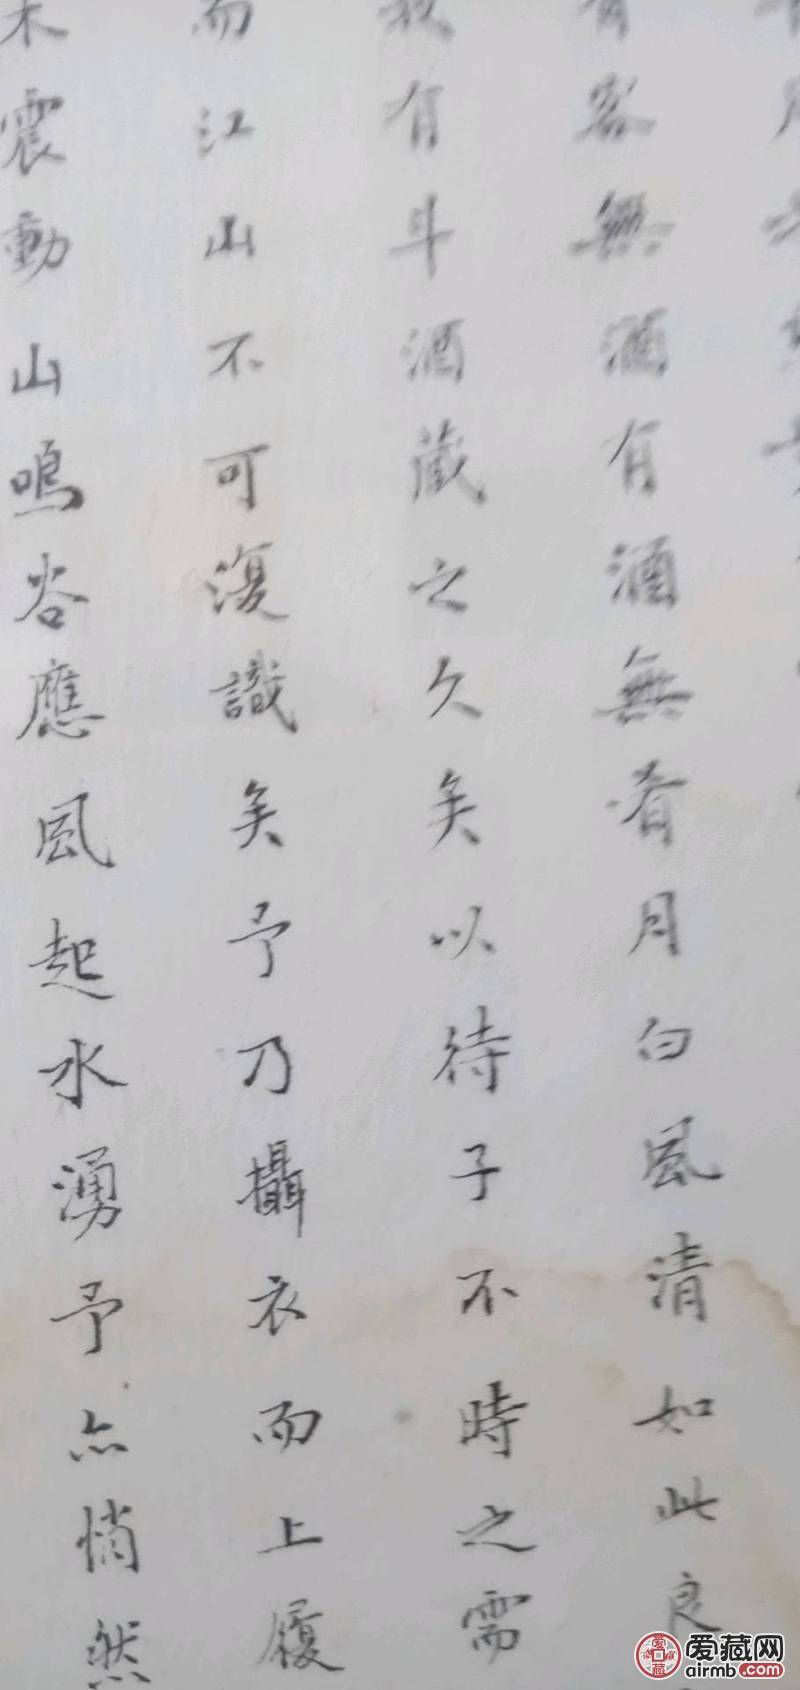 有客無酒有酒無肴月白風清如此良
我有斗酒藏之久矣以待子不時之需
而江山不可復識矣予乃攝衣而上履
木震動山鳴谷應風起水湧予亦悄然
爱藏网
airmb.com